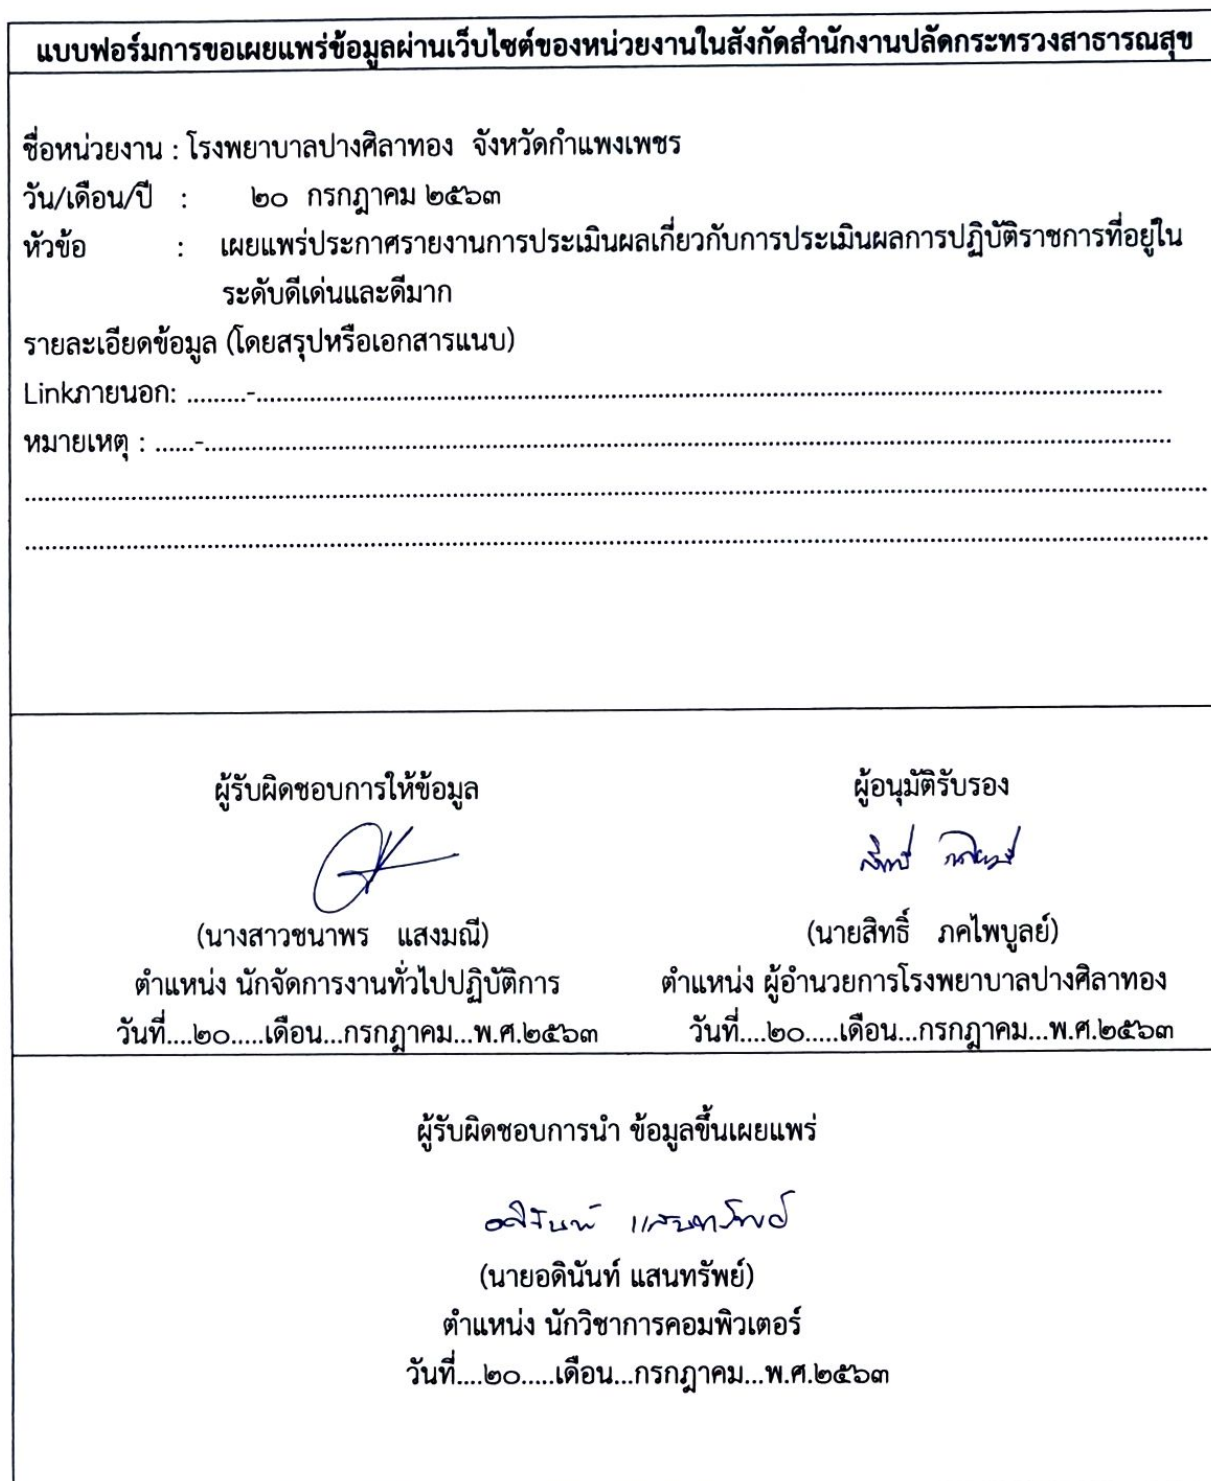 แบบฟอร์มการขอเผยแพร่ข้อมูลผ่านเว็บไซต์ของหน่วยงานในสังกัดสำนักงานปลัดกระทรวงสาธารณสุข
ชื่อหน่วยงาน : โรงพยาบาลปางศิลาทอง จังหวัดกำแพงเพชร
วัน/เดือน/ปี : ๒๐ กรกฎาคม ๒๕๖๓
หัวข้อ : เผยแพร่ประกาศรายงานการประเมินผลเกี่ยวกับการประเมินผลการปฏิบัติราชการที่อยู่ใน
ระดับดีเด่นและดีมาก
รายละเอียดข้อมูล (โดยสรุปหรือเอกสารแนบ)
Linkภายนอก: .........-.........................................................................................................................................
หมายเหตุ : ......-.................................................................................................................................................
..................................................................................................................................................................................
..................................................................................................................................................................................
ผู้รับผิดชอบการให้ข้อมูล
(นางสาวชนาพร แสงมณี)
ตำแหน่ง นักจัดการงานทั่วไปปฏิบัติการ
วันที่....๒๐.....เดือน...กรกฎาคม...พ.ศ.๒๕๖๓
ผู้อนุมัติรับรอง
สิทธิ์ ภคไพบูลย์
(นายสิทธิ์ ภคไพบูลย์)
ตำแหน่ง ผู้อำนวยการโรงพยาบาลปางศิลาทอง
วันที่....๒๐.....เดือน...กรกฎาคม...พ.ศ.๒๕๖๓
ผู้รับผิดชอบการนำ ข้อมูลขึ้นเผยแพร่
อดินันท์ แสนทรัพย์
(นายอดินันท์ แสนทรัพย์)
ตำแหน่ง นักวิชาการคอมพิวเตอร์
วันที่....๒๐.....เดือน...กรกฎาคม...พ.ศ.๒๕๖๓